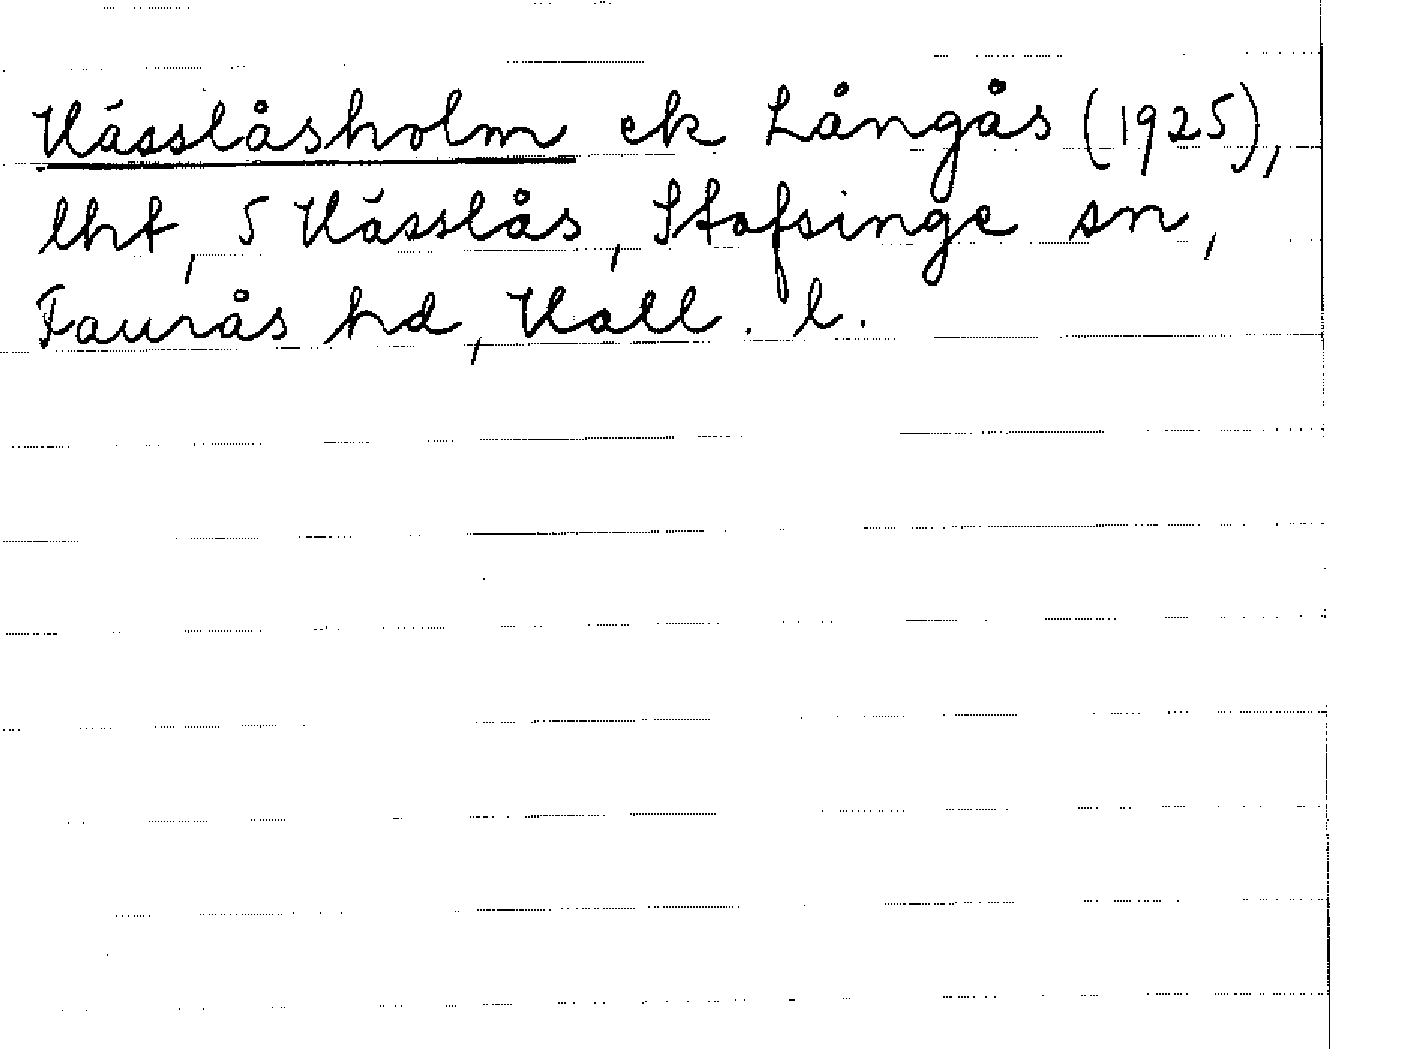 Hässlåsholm ek Långås (1925),
lht, 5 Hässlås, Stafsinge sn,
Faurås hd, Hall. l.